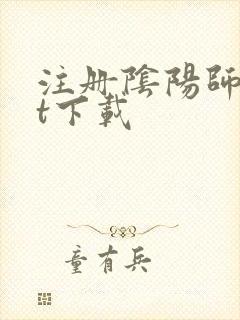 注册陰陽師
t下載
童有兵